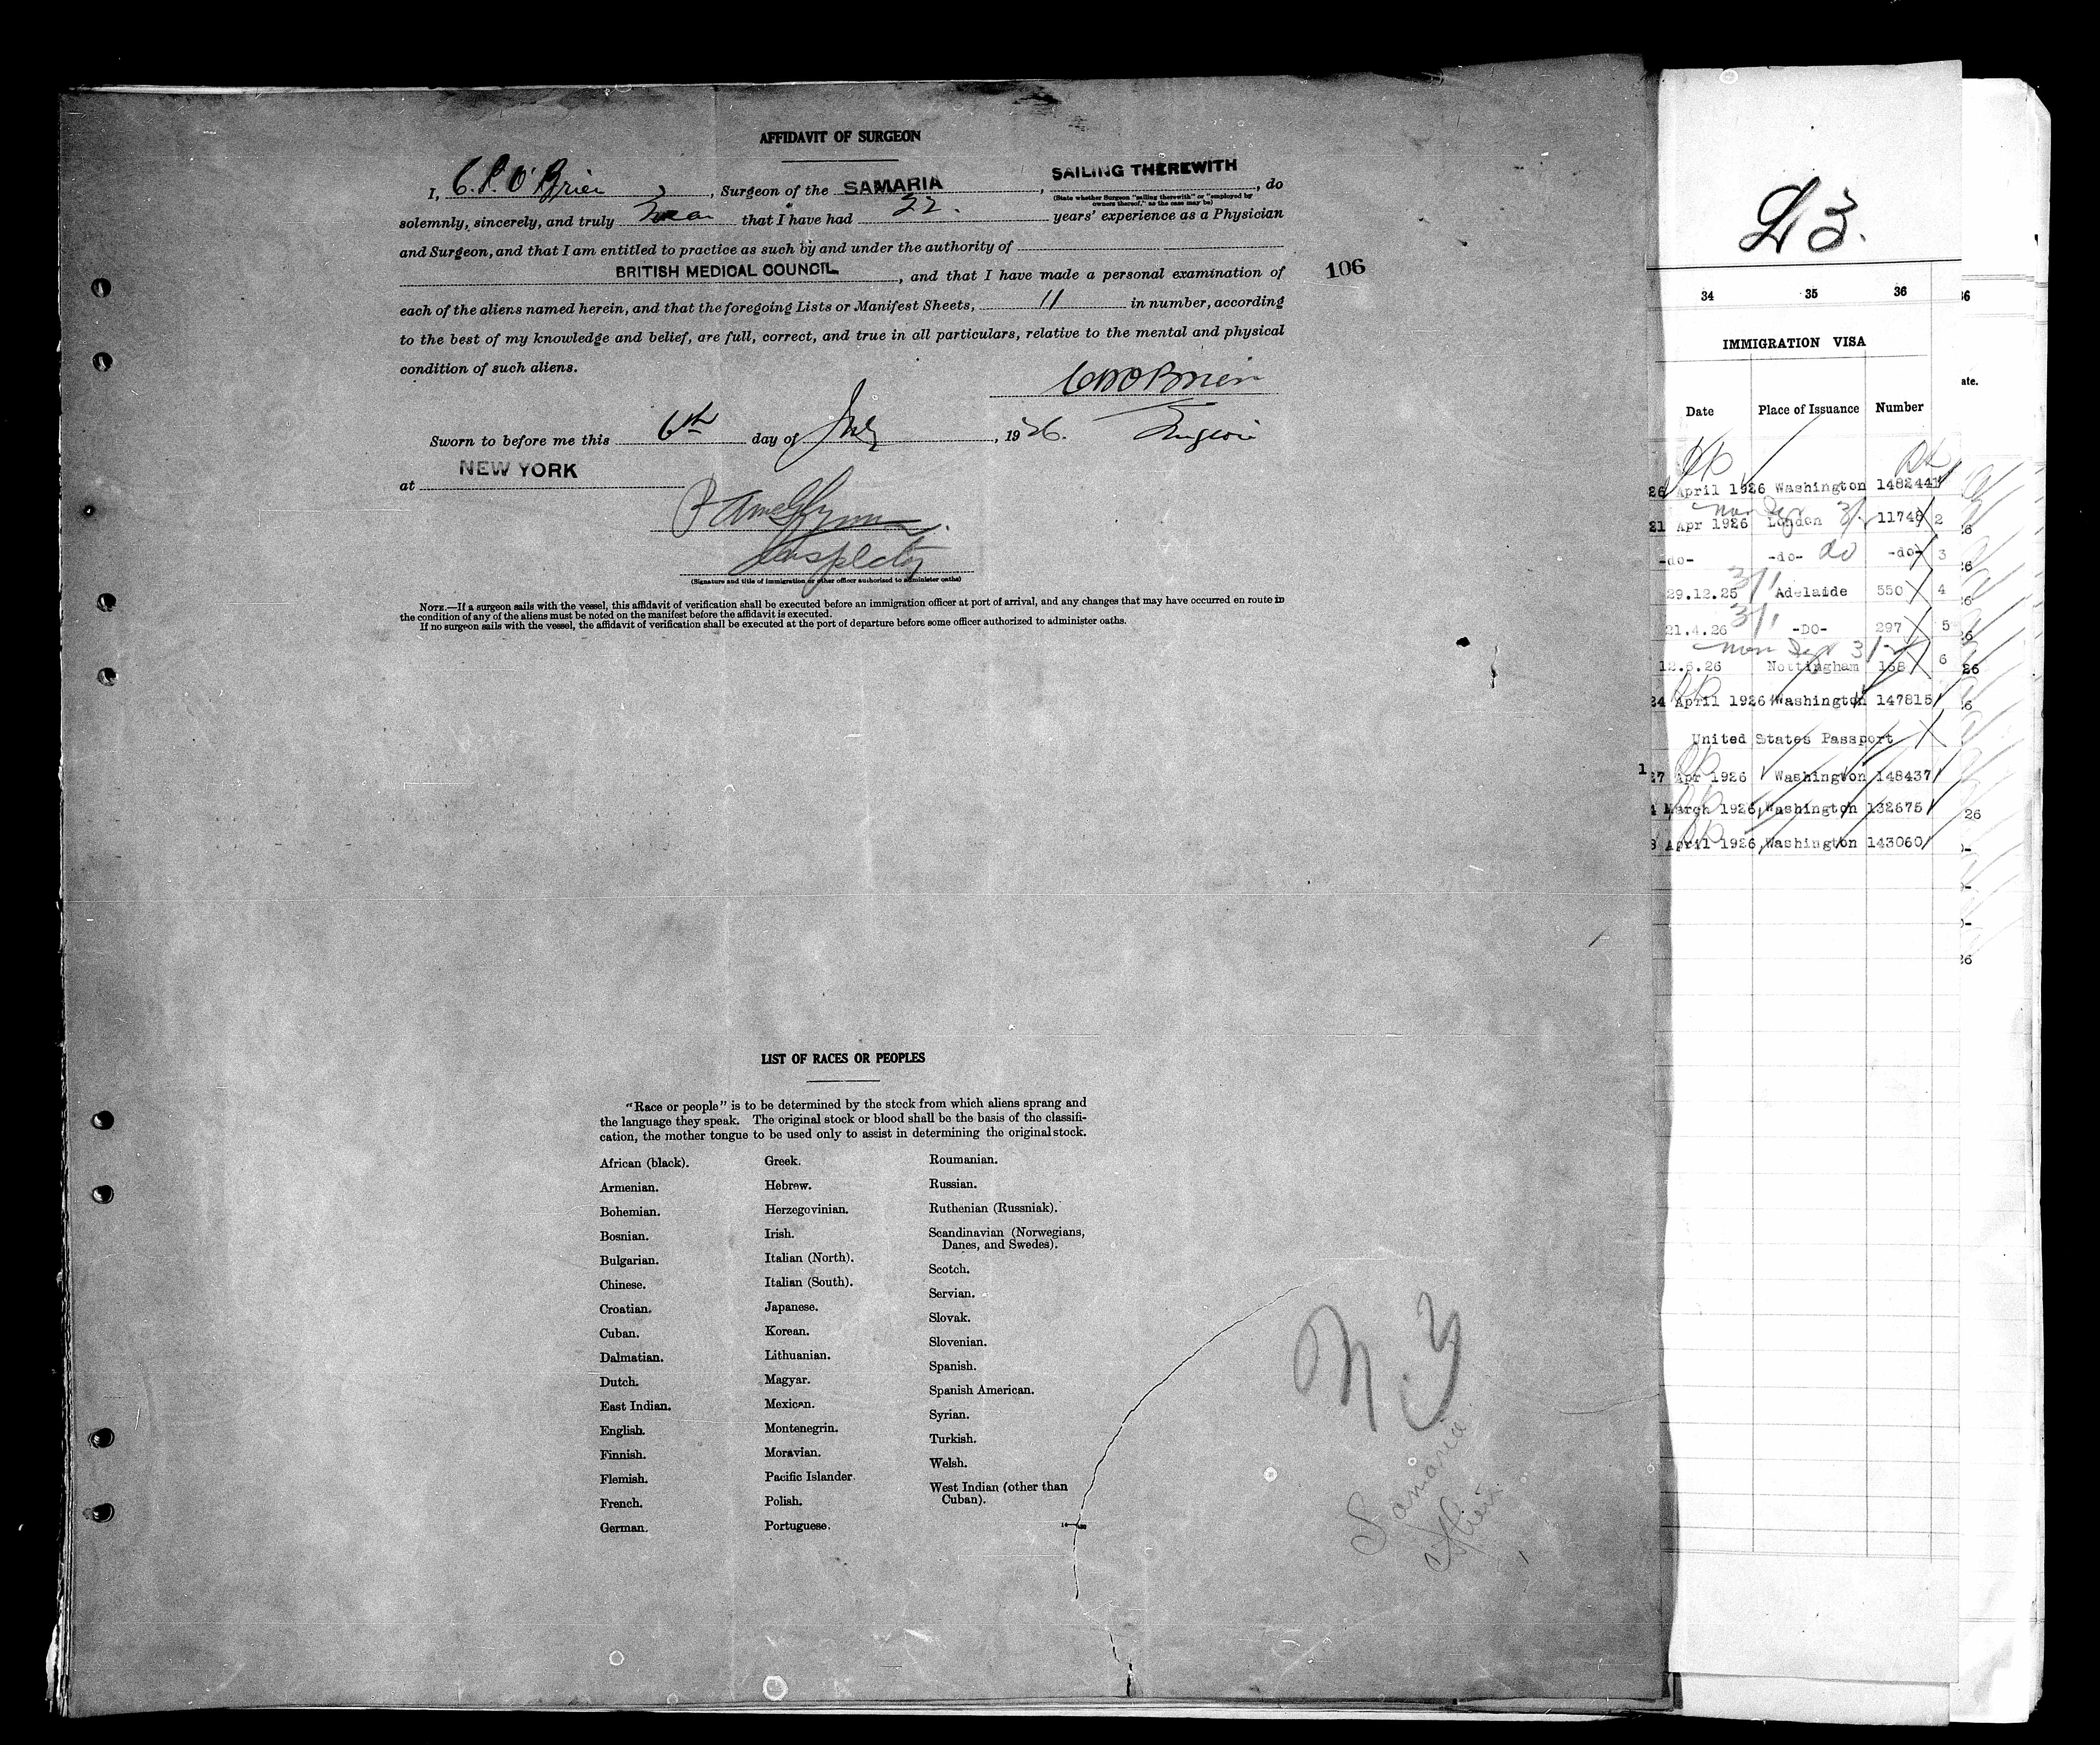 AFFIDAVIT OF SURGEON
I, C. P. O'Brien, Surgeon of the SAMARIA, SAILING THEREWITH, do
(State whether Surgeon "sailing therewith" or "employed by
owners thereof," as the case may be)
solemnly, sincerely, and truly swear that I have had 22. years' experience as a Physician
and Surgeon, and that I am entitled to practice as such by and under the authority of
BRITISH MEDICAL COUNCIL, and that I have made a personal examination of
106
each of the aliens named herein, and that the foregoing Lists or Manifest Sheets, 11 in number, according
to the best of my knowledge and belief, are full, correct, and true in all particulars, relative to the mental and physical
condition of such aliens.
O'Brien
Sworn to before me this 6th day of July, 1926. Surgeon
at NEW YORK
Inspector
(Signature and title of immigration or other officer authorized to administer oaths)
NOTE.—If a surgeon sails with the vessel, this affidavit of verification shall be executed before an immigration officer at port of arrival, and any changes that may have occurred en route in
the condition of any of the aliens must be noted on the manifest before the affidavit is executed.
If no surgeon sails with the vessel, the affidavit of verification shall be executed at the port of departure before some officer authorized to administer oaths.
LIST OF RACES OR PEOPLES
"Race or people" is to be determined by the stock from which aliens sprang and
the language they speak. The original stock or blood shall be the basis of the classifi-
cation, the mother tongue to be used only to assist in determining the original stock.
African (black).
Armenian.
Bohemian.
Bosnian.
Bulgarian.
Chinese.
Croatian.
Cuban.
Dalmatian.
Dutch.
East Indian.
English.
Finnish.
Flemish.
French.
German.
Greek.
Hebrew.
Herzegovinian.
Irish.
Italian (North).
Italian (South).
Japanese.
Korean.
Lithuanian.
Magyar.
Mexican.
Montenegrin.
Moravian.
Pacific Islander.
Polish.
Portuguese.
Roumanian.
Russian.
Ruthenian (Russniak).
Scandinavian (Norwegians,
Danes, and Swedes).
Scotch.
Servian.
Slovak.
Slovenian.
Spanish.
Spanish American.
Syrian.
Turkish.
Welsh.
West Indian (other than
Cuban).
Samaria
Alien
L 3.
34 35 36
IMMIGRATION VISA
Date Place of Issuance Number
26 April 1926 Washington 1482441
21 Apr 1926 London 11748 2
-do- -do- do -do- 3
29.12.25 3/1 Adelaide 550 4
21.4.26 3/1 -DO- 297 5
12.5.26 Nottingham 168 6
24 April 1926 Washington 147815
United States Passport
27 Apr 1926 Washington 148437
4 March 1926, Washington 132675
8 April 1926, Washington 143060
36
ate.
26
26